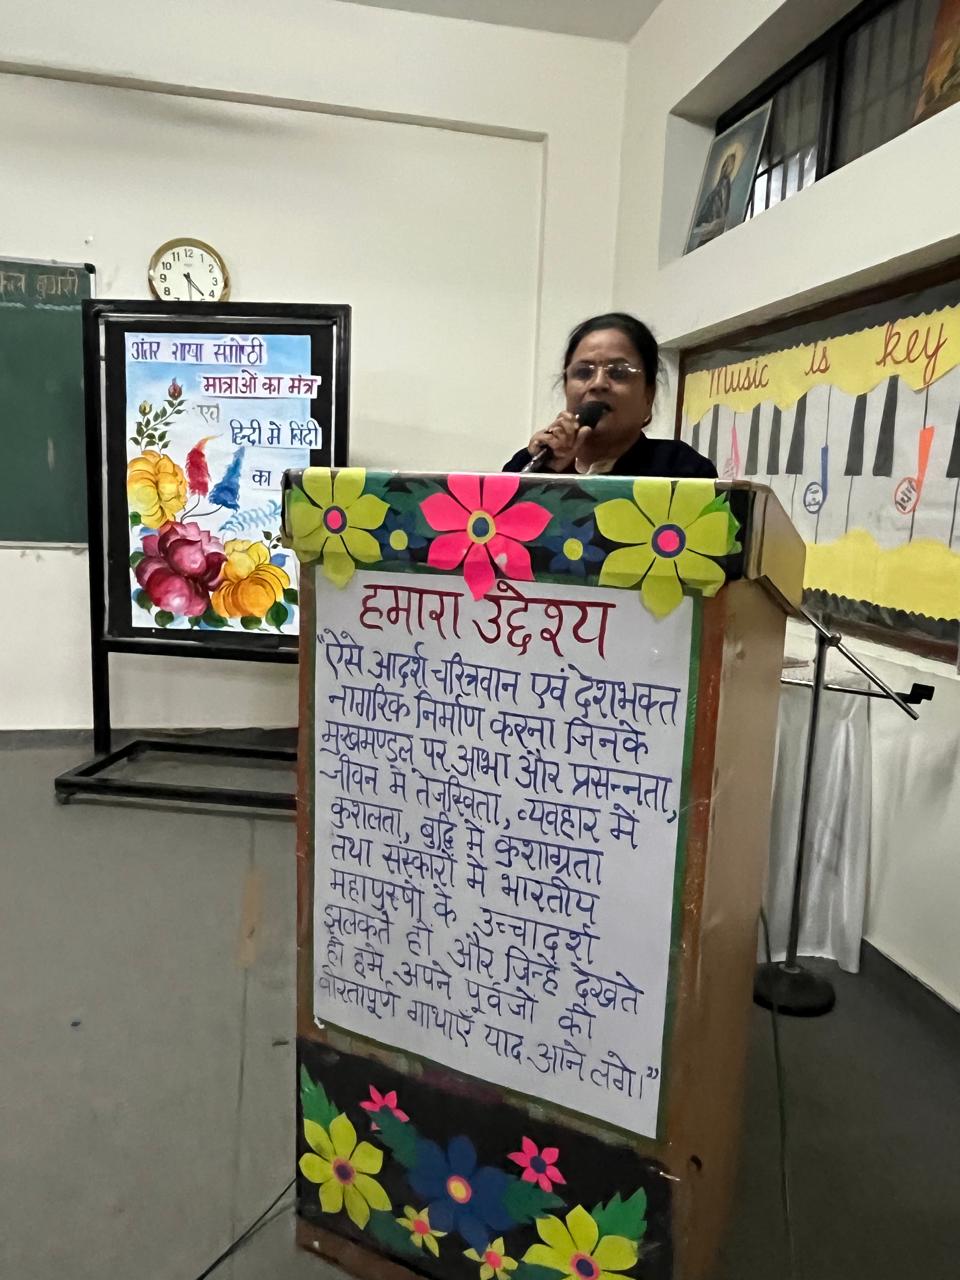 अंतर शाखा संगोष्ठी
मात्राओं का मंत्र
एवं
हिन्दी में बिंदी
का
12
11
10
9
8
7
6
5
4
3
2
1
Music is key
हमारा उद्देश्य
"ऐसे आदर्श चरित्रवान एवं देशभक्त
नागरिक निर्माण करना जिनके
मुखमण्डल पर आभा और प्रसन्नता,
जीवन में तेजस्विता, व्यवहार में
कुशलता, बुद्धि में कुशाग्रता
तथा संस्कारों में भारतीय
महापुरुषों के उच्चादर्श
झलकते हों और जिन्हें देखते
ही हमें अपने पूर्वजों की
वीरतापूर्ण गाथाएँ याद आने लगे।"